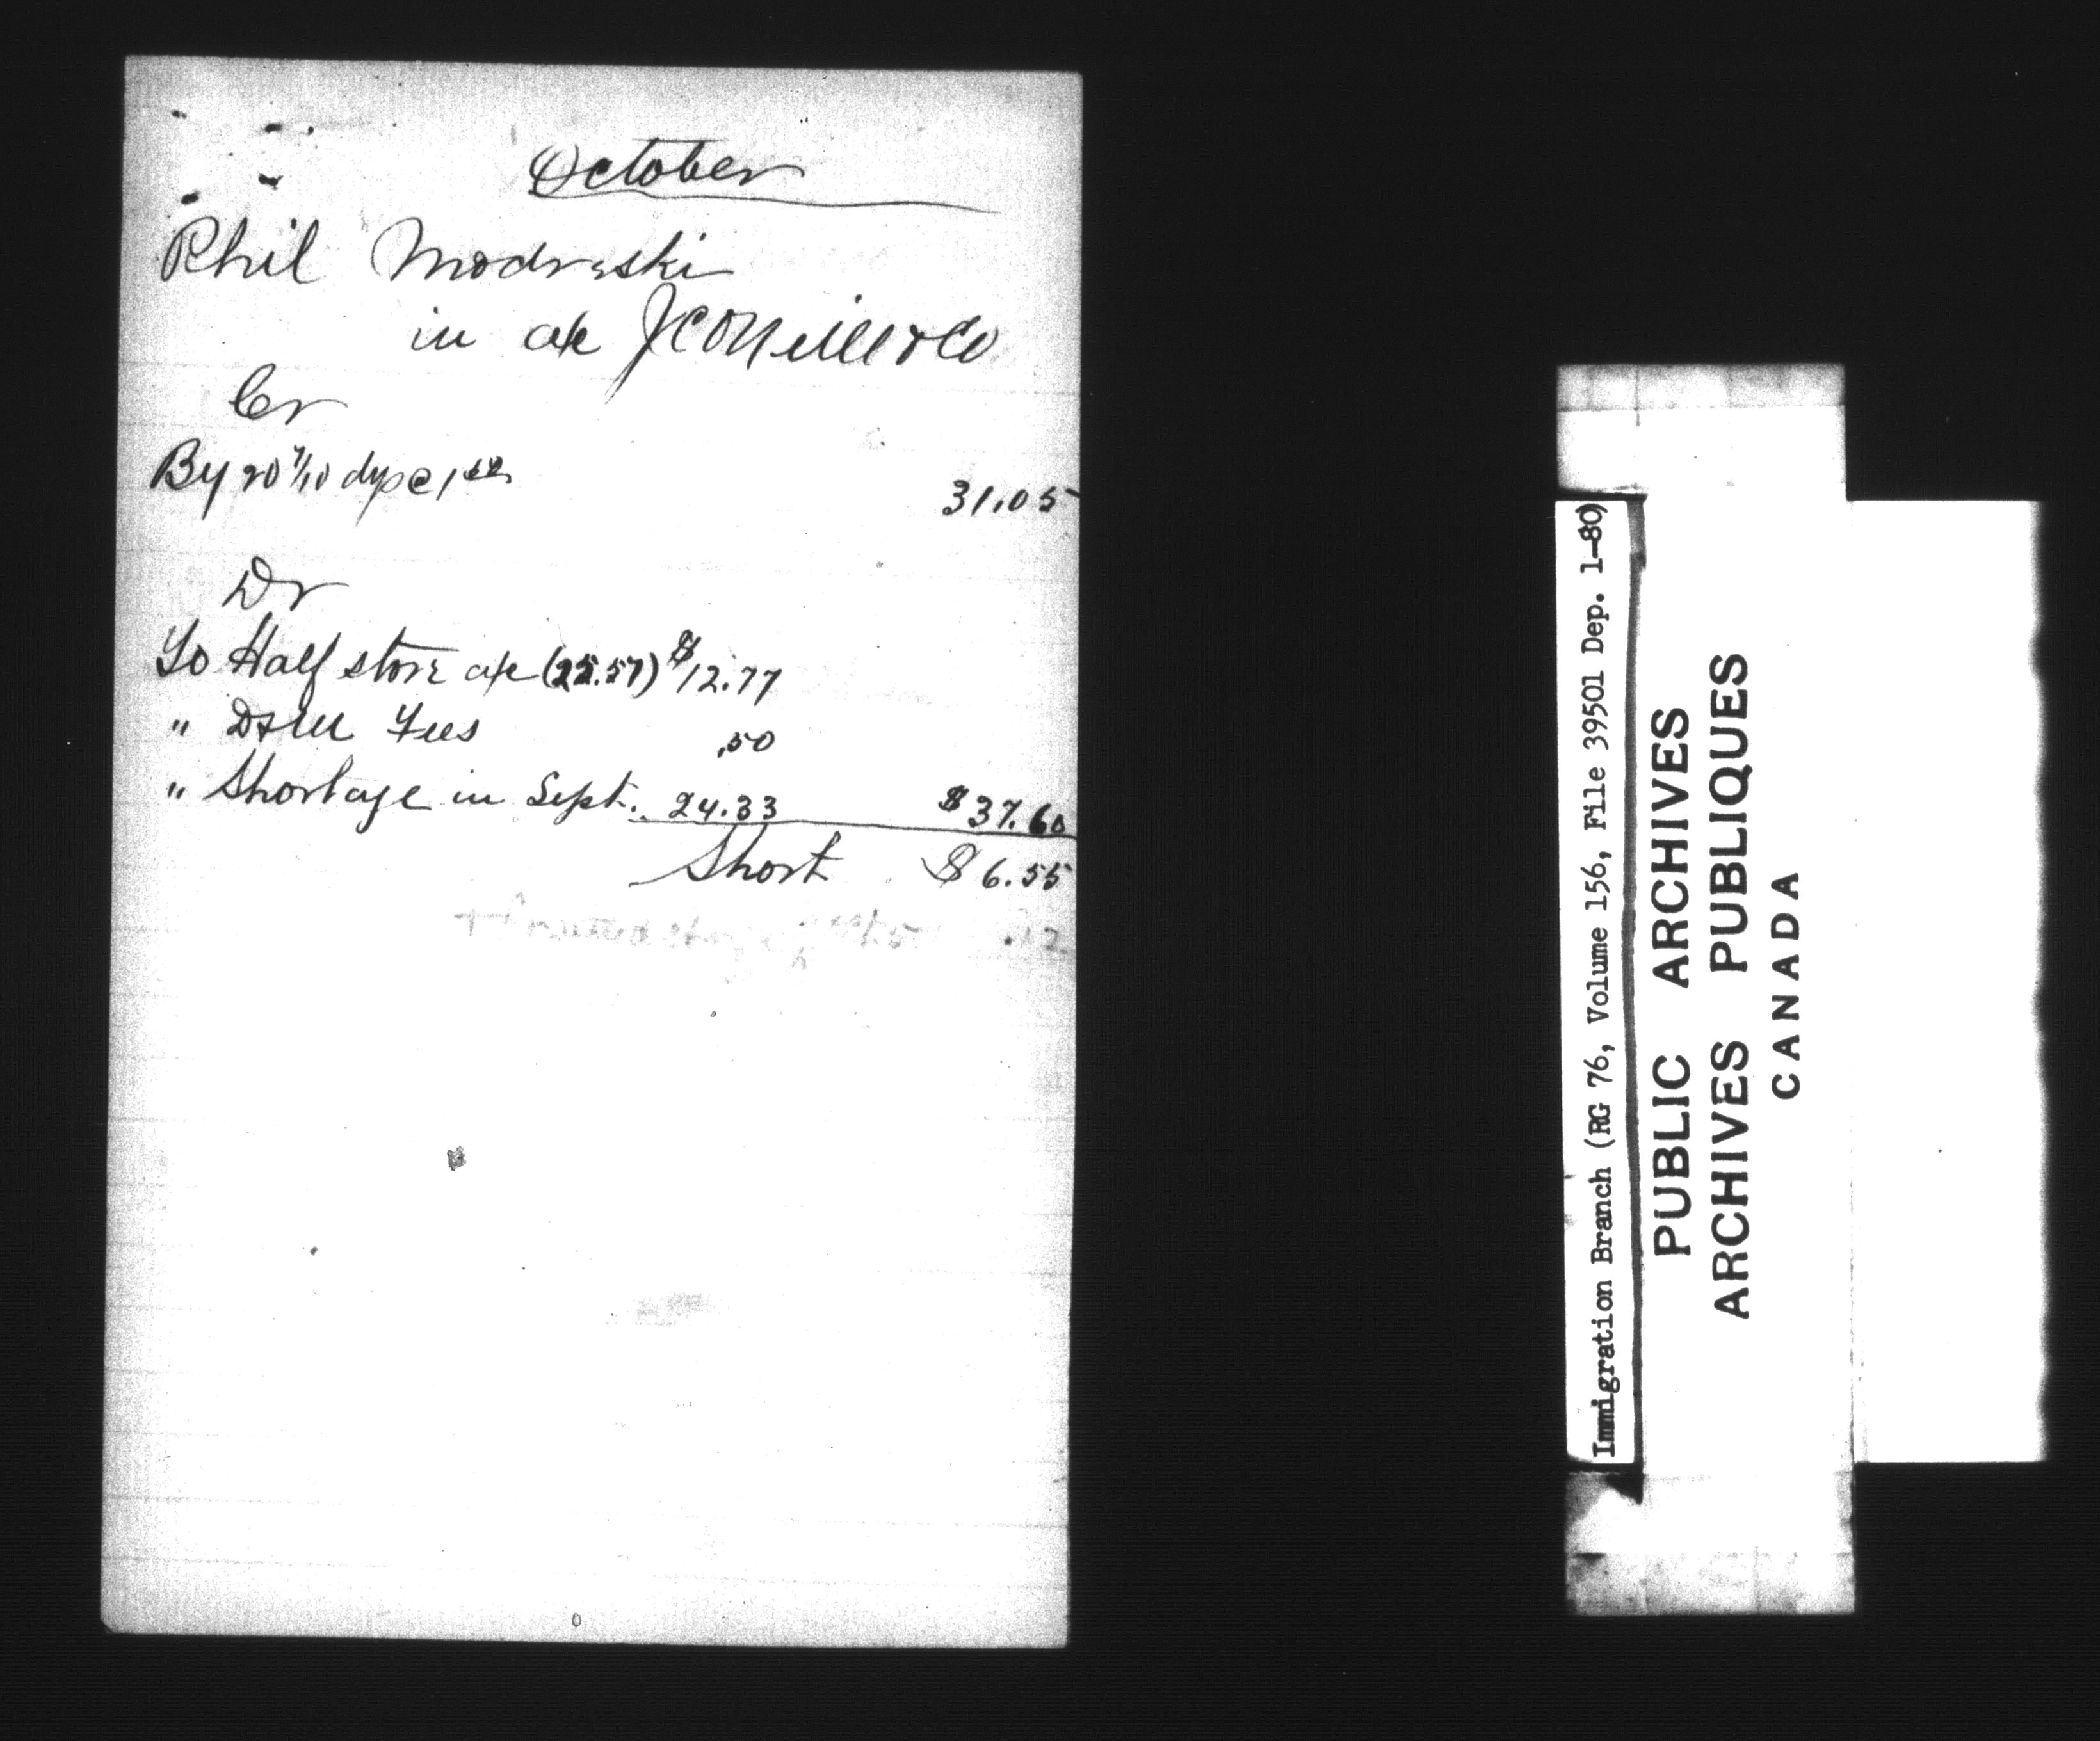 October
Phil Modraski
in a/c J C O'Neill & Co
Cr
By 20 7/10 dys @ 1.50 31.05
Dr
To Half store a/c (25.57) $12.77
" Fees .50
" Shortage in Sept. 24.33 $37.60
Short $6.55
Immigration Branch (RG 76, Volume 156, File 39501 Dep. 1-80)
PUBLIC ARCHIVES
ARCHIVES PUBLIQUES
CANADA